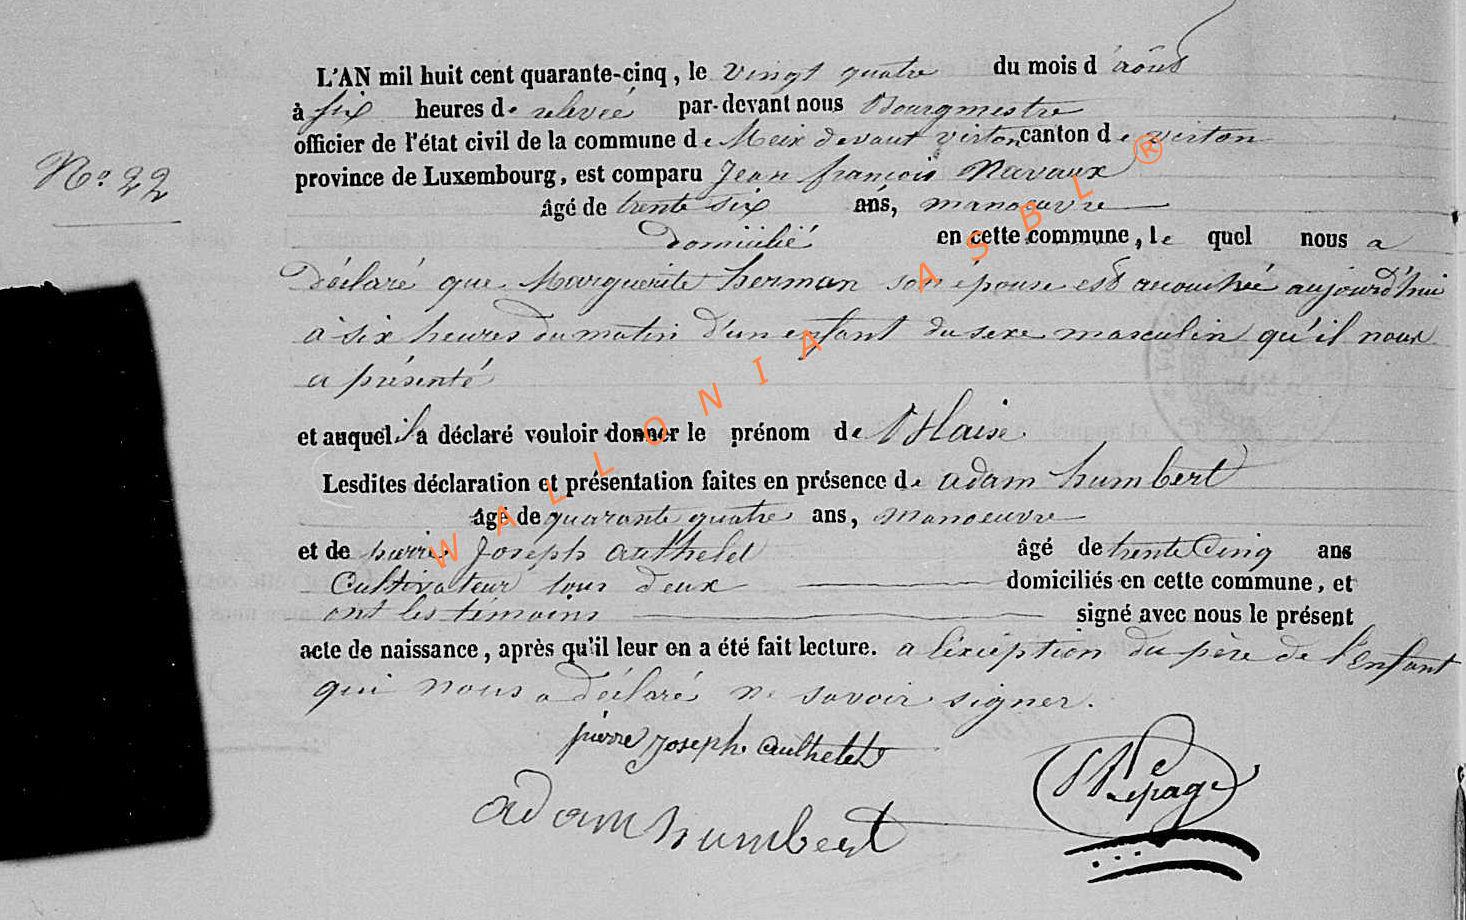 L'AN mil huit cent quarante-cinq, le vingt quatre du mois d'août
à six heures de relevée par-devant nous Bourgmestre
officier de l'état civil de la commune de Meix devant virton canton de virton
No 22
province de Luxembourg, est comparu Jean françois Navaux
âgé de trente six ans, manoeuvre
Domicilié en cette commune, le quel nous a
Déclaré que Marguerite herman son épouse est accouchée aujourd'hui
à six heures du matin d'un enfant du sexe masculin qu'il nous
a présenté
et auquel il a déclaré vouloir donner le prénom de Blaise
Lesdites déclaration et présentation faites en présence de adam humbert
âgé de quarante quatre ans, manoeuvre
et de Joseph authelet âgé de trente Cinq ans
Cultivateur tous deux domiciliés en cette commune, et
ont les témoins signé avec nous le présent
acte de naissance, après qu'il leur en a été fait lecture. a l'exception du père de l'Enfant
qui nous a déclaré ne savoir signer.
pierre Joseph authelet
Lepage
adam humbert
WALLONIA ASBL ®